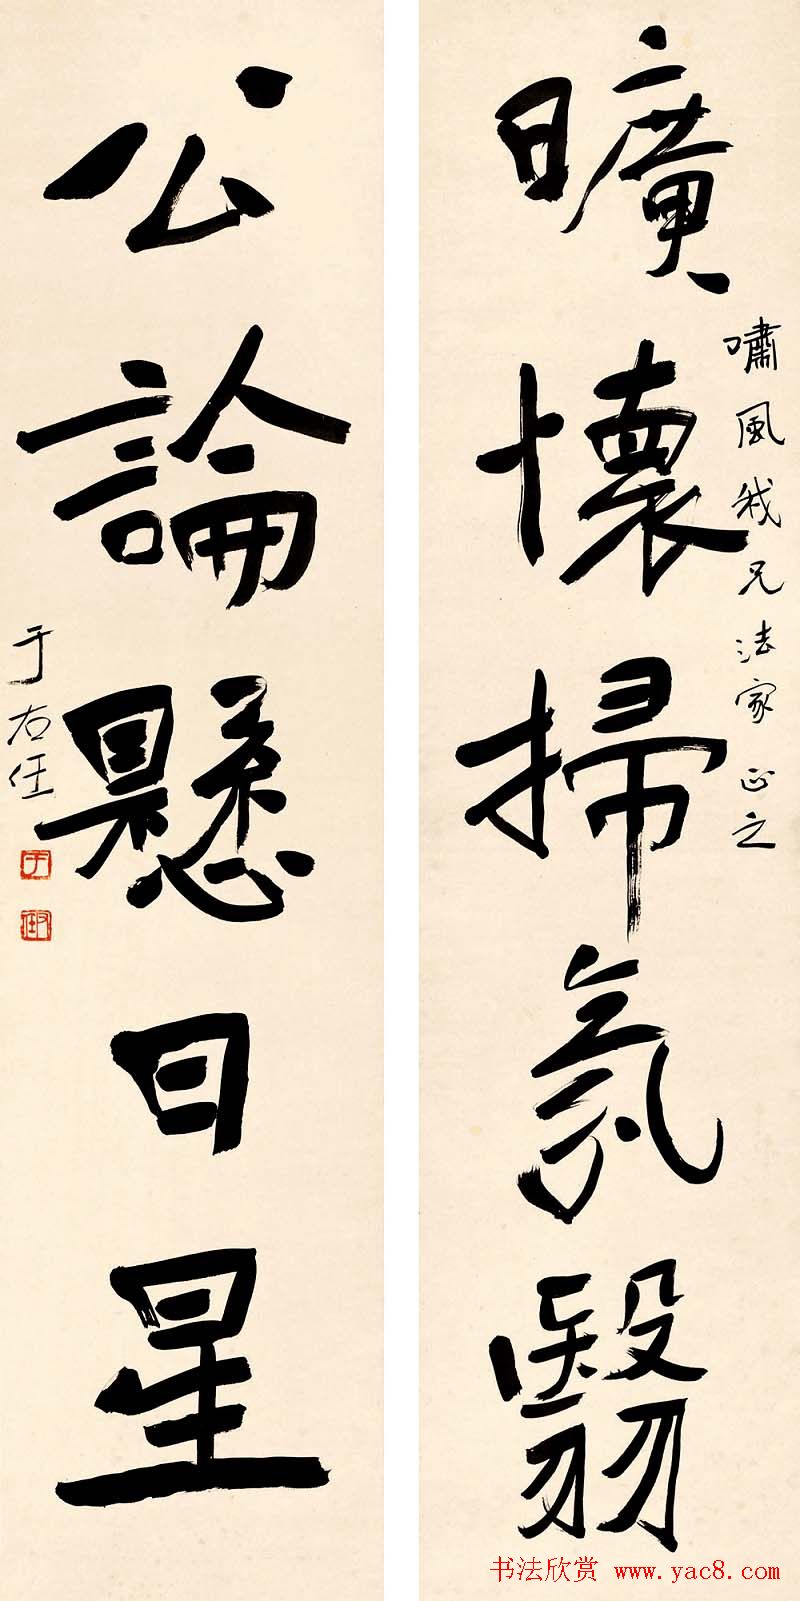 曠懷掃氛翳
嘯風我兄法家正之
公論懸日星
于右任
書法欣赏 www.yac8.com